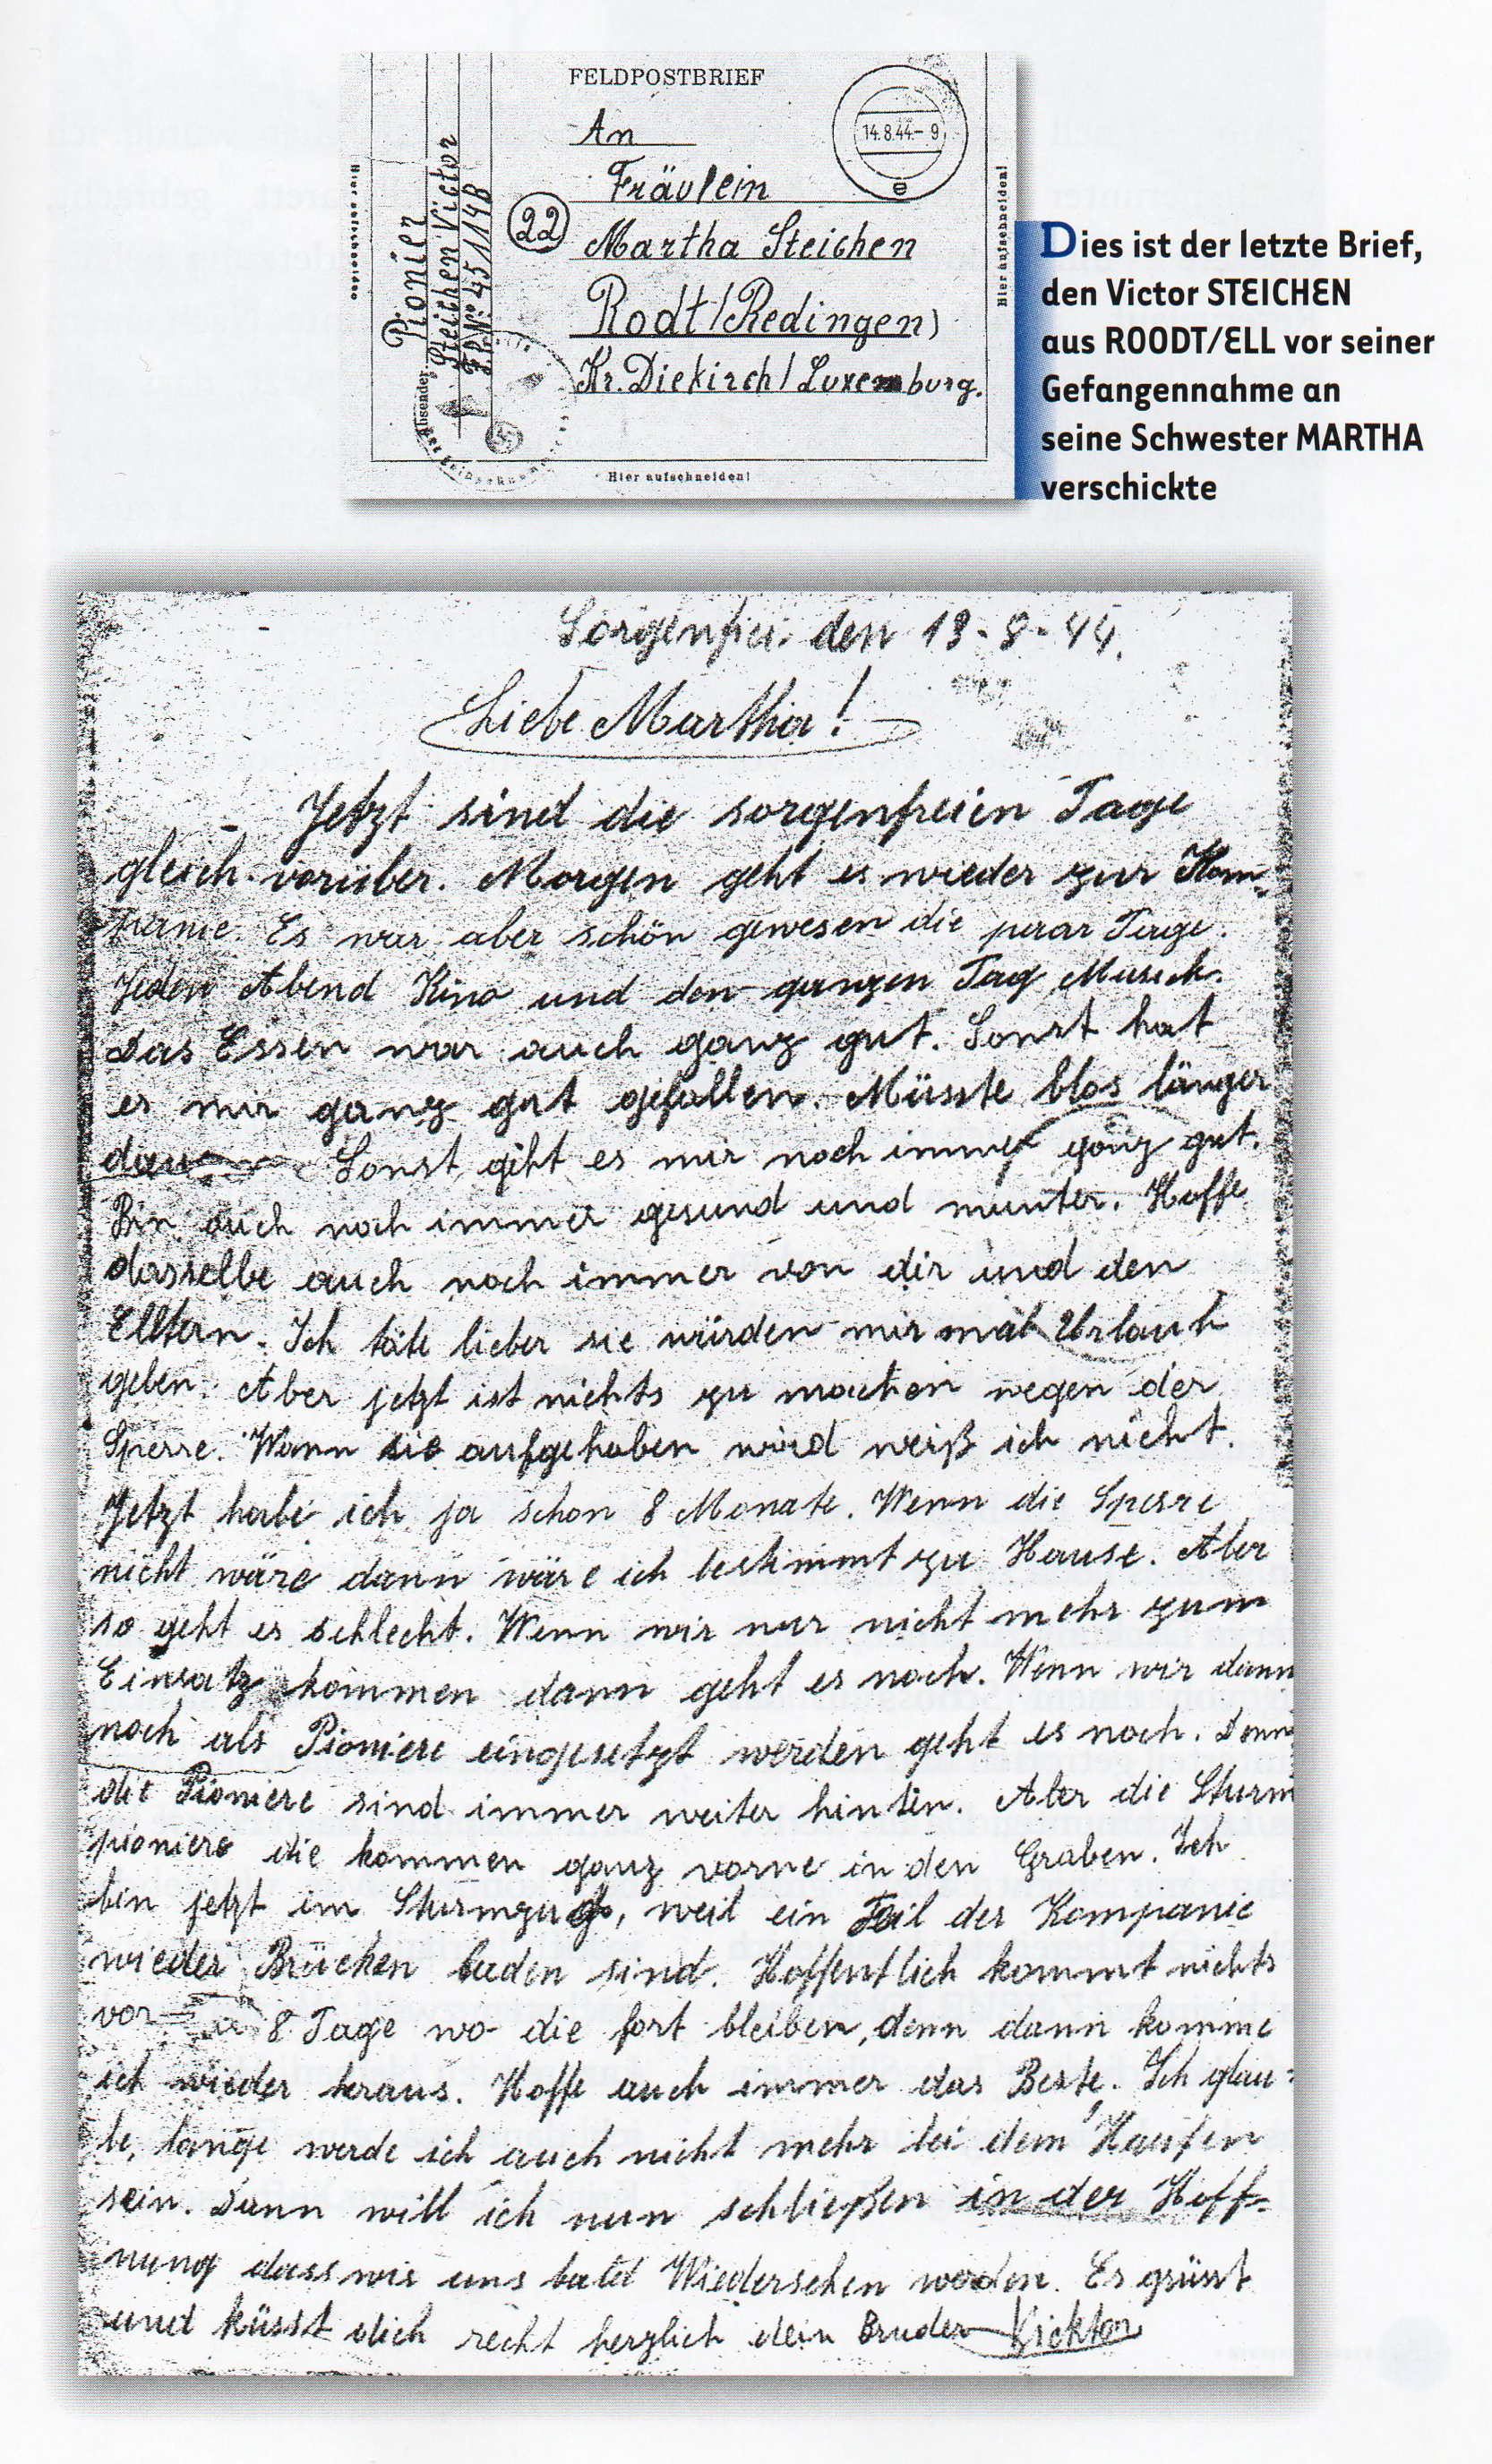 FELDPOSTBRIEF
An
Fräulein
Martha Steichen
Rodt/Redingen)
Kr. Diekirch/Luxemburg.
22
14.8.44.- 9
e
Pionier
Steichen Victor
F.P.N° 45114B
Absender
Hier aufschneiden
Hier aufschneiden!
Hier aufschneiden!
Dies ist der letzte Brief,
den Victor STEICHEN
aus ROODT/ELL vor seiner
Gefangennahme an
seine Schwester MARTHA
verschickte
Sorgenfrei. den 13-8-44.
Liebe Martha!
Jetzt sind die sorgenfreien Tage
gleich vorüber. Morgen geht es wieder zur Kom-
panie. Es war aber schön gewesen die paar Tage.
Jeden Abend Kino und den ganzen Tag Musick.
Das Essen war auch ganz gut. Sonst hat
es mir ganz gut gefallen. Müsste blos länger
Sonst geht es mir noch immer ganz gut.
Bin auch noch immer gesund und munter. Hoffe
dasselbe auch noch immer von dir und den
Elltern. Ich täte lieber sie würden mir mal Urlaub
geben. Aber jetzt ist nichts zu machen wegen der
Sperre. Wann sie aufgehoben wird weiß ich nicht.
Jetzt habe ich ja schon 8 Monate. Wenn die Sperre
nicht wäre dann wäre ich bestimmt zu Hause. Aber
so geht es schlecht. Wenn wir nur nicht mehr zum
Einsatz kommen dann geht es noch. Wenn wir dann
noch als Pioniere eingesetzt werden geht es noch. Denn
die Pioniere sind immer weiter hinten. Aber die Sturm
pioniere die kommen ganz vorne in den Graben. Ich
bin jetzt im Sturmzug, weil ein Teil der Kompanie
wieder Brücken baden sind. Hoffentlich kommt nichts
vor 8 Tage wo die fort bleiben, denn dann komme
ich wieder heraus. Hoffe auch immer das Beste. Ich glau=
be, lange werde ich auch nicht mehr bei dem Haufen
sein. Dann will ich nun schließen in der Hoff=
nung dass wir uns bald Wiedersehen werden. Es grüsst
und küsst dich recht herzlich dein Bruder Vicktor